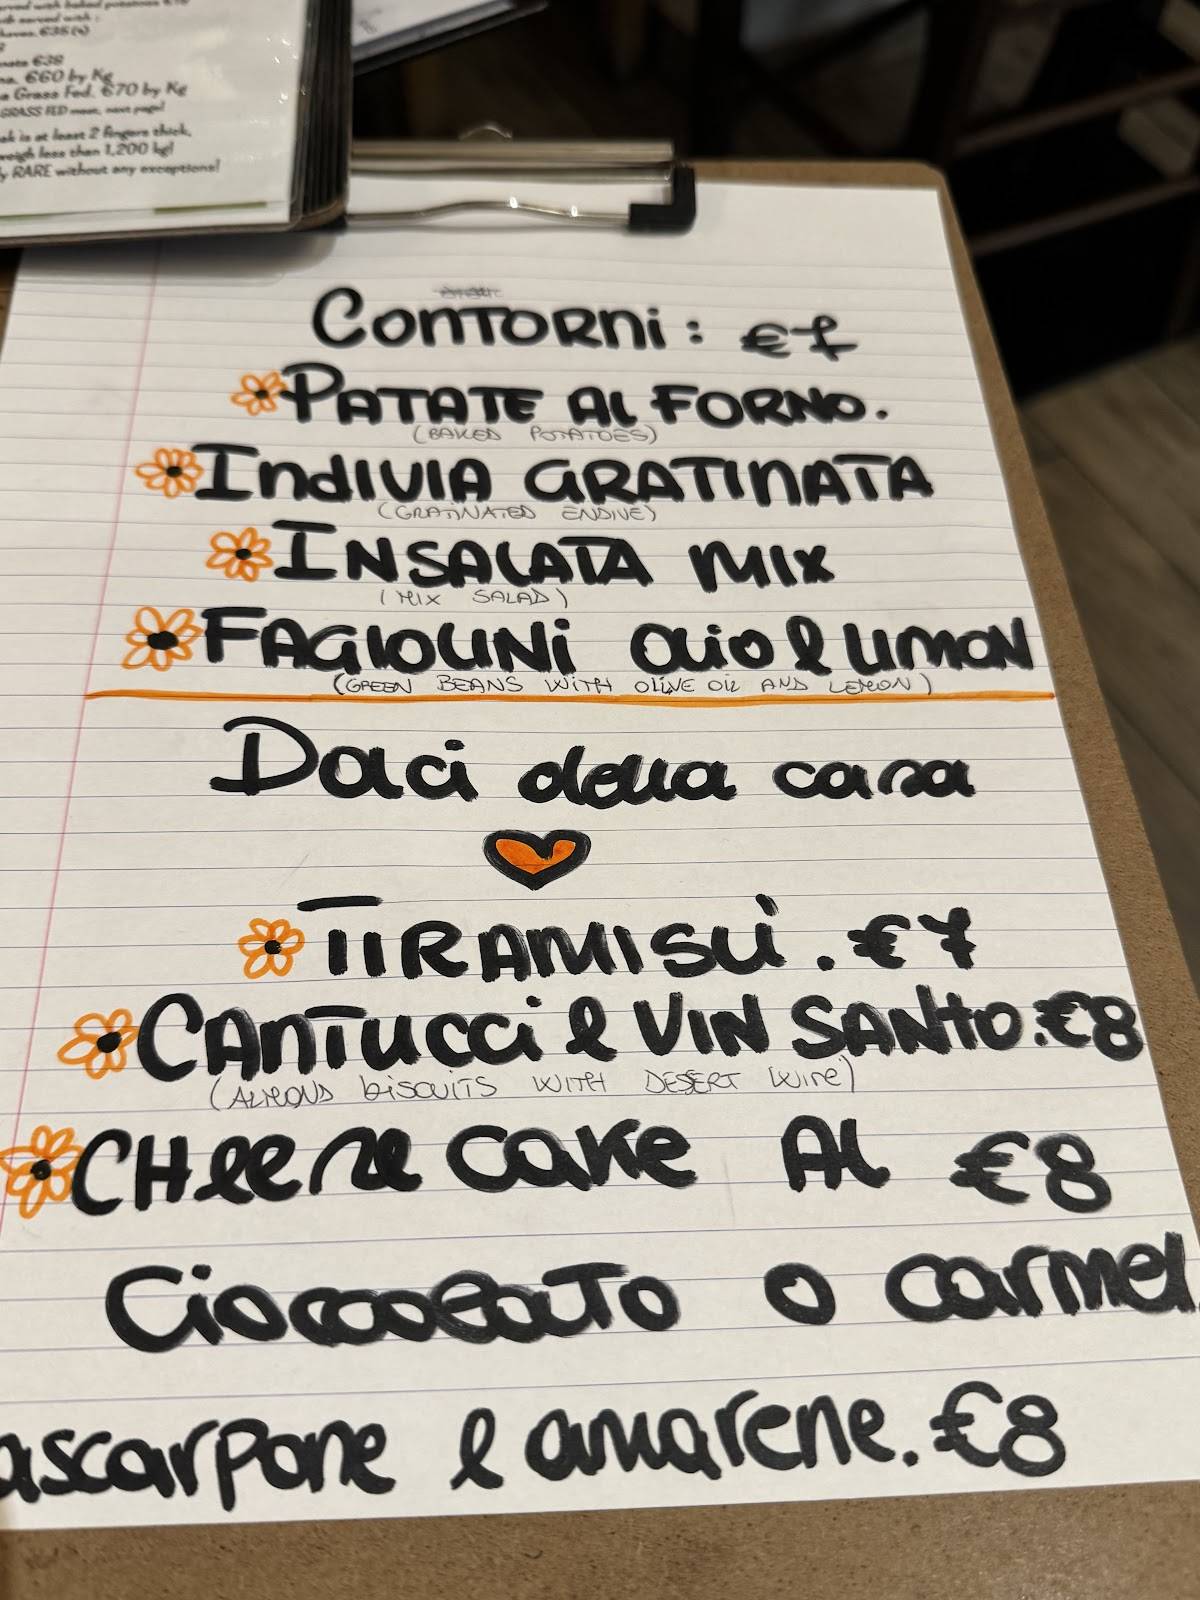 served with baked potatoes
served with :
€38
€60 by Kg
Grass Fed. €70 by Kg
GRASS FED meat, next page!
is at least 2 fingers thick,
weigh less than 1,200 kg!
RARE without any exceptions!
CONTORNI: €7
PATATE AL FORNO.
(BAKED POTATOES)
INDIVIA GRATINATA
(GRATINATED ENDIVE)
INSALATA MIX
(MIX SALAD)
FAGIOLINI OLIO e LIMON
(GREEN BEANS WITH OLIVE OIL AND LEMON)
Dolci della casa
TIRAMISÙ. €7
CANTUCCI e VIN SANTO. €8
(ALMOND BISCUITS WITH DESERT WINE)
CHeese cake Al €8
Cioccolato o carmel
ascarpone e amarene. €8